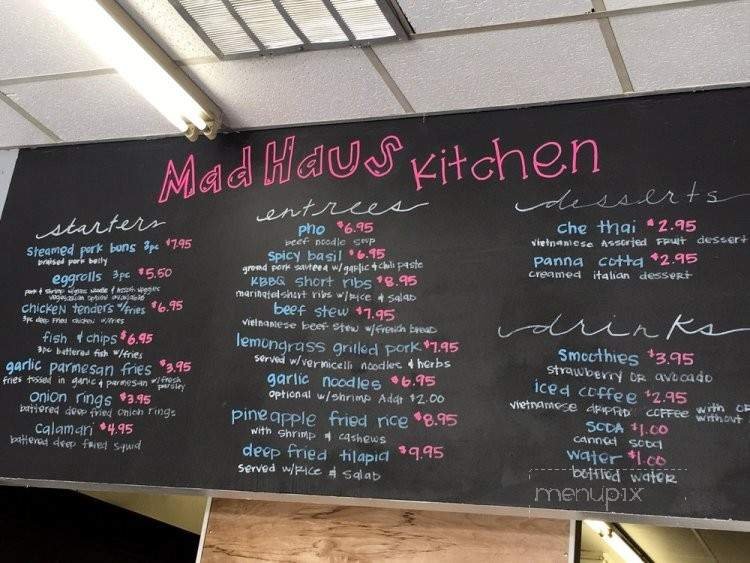 Mad Haus Kitchen
starters
steamed pork buns 3pc $7.95
braised pork belly
eggrolls 3pc $5.50
pork & shrimp w/glass noodle & fresh veggies
vegetarian option available
chicken tenders w/fries $6.95
3pc deep fried chicken w/fries
fish & chips $6.95
3pc battered fish w/fries
garlic parmesan fries $3.95
fries tossed in garlic & parmesan w/fresh parsley
onion rings $3.95
battered deep fried onion rings
calamari $4.95
battered deep fried squid
entrees
pho $6.95
beef noodle soup
spicy basil $6.95
ground pork sauteed w/garlic & chili paste
KBBQ short ribs $8.95
marinated short ribs w/rice & salad
beef stew $7.95
vietnamese beef stew w/french bread
lemongrass grilled pork $7.95
served w/vermicelli noodles & herbs
garlic noodles $6.95
optional w/shrimp Add: $2.00
pineapple fried rice $8.95
with shrimp & cashews
deep fried tilapia $9.95
served w/rice & salad
desserts
che thai $2.95
vietnamese assorted fruit dessert
panna cotta $2.95
creamed italian dessert
drinks
smoothies $3.95
strawberry or avocado
iced coffee $2.95
vietnamese dripped coffee with or without
soda $1.00
canned soda
water $1.00
bottled water
menupix